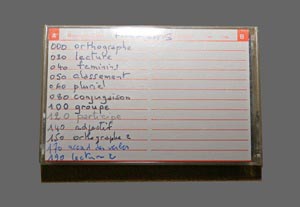 A B
000 orthographe
030 lecture
040 feminins
050 classement
060 pluriel
080 conjugaison
100 groupe
120 participe
140 adjectif
150 orthographe 2
170 accord du verbe
190 lecture 2